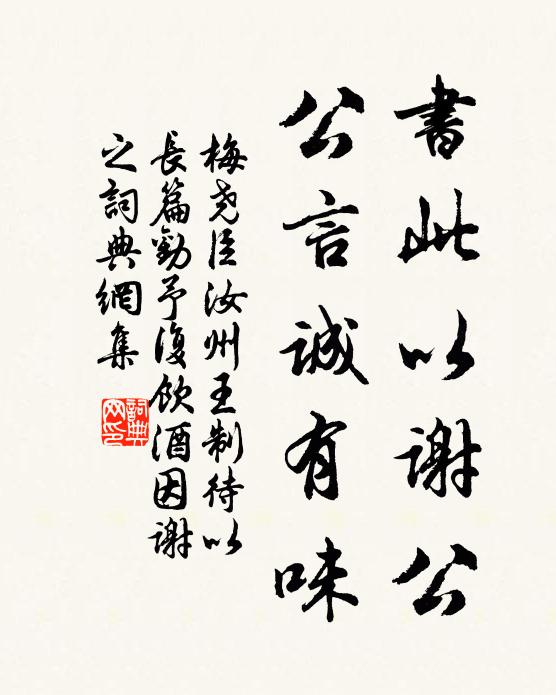 書此以謝公
公言誠有味
梅尧臣汝州王制待以
長篇勸予復飲酒因謝
之詞典網集
詞典
网印